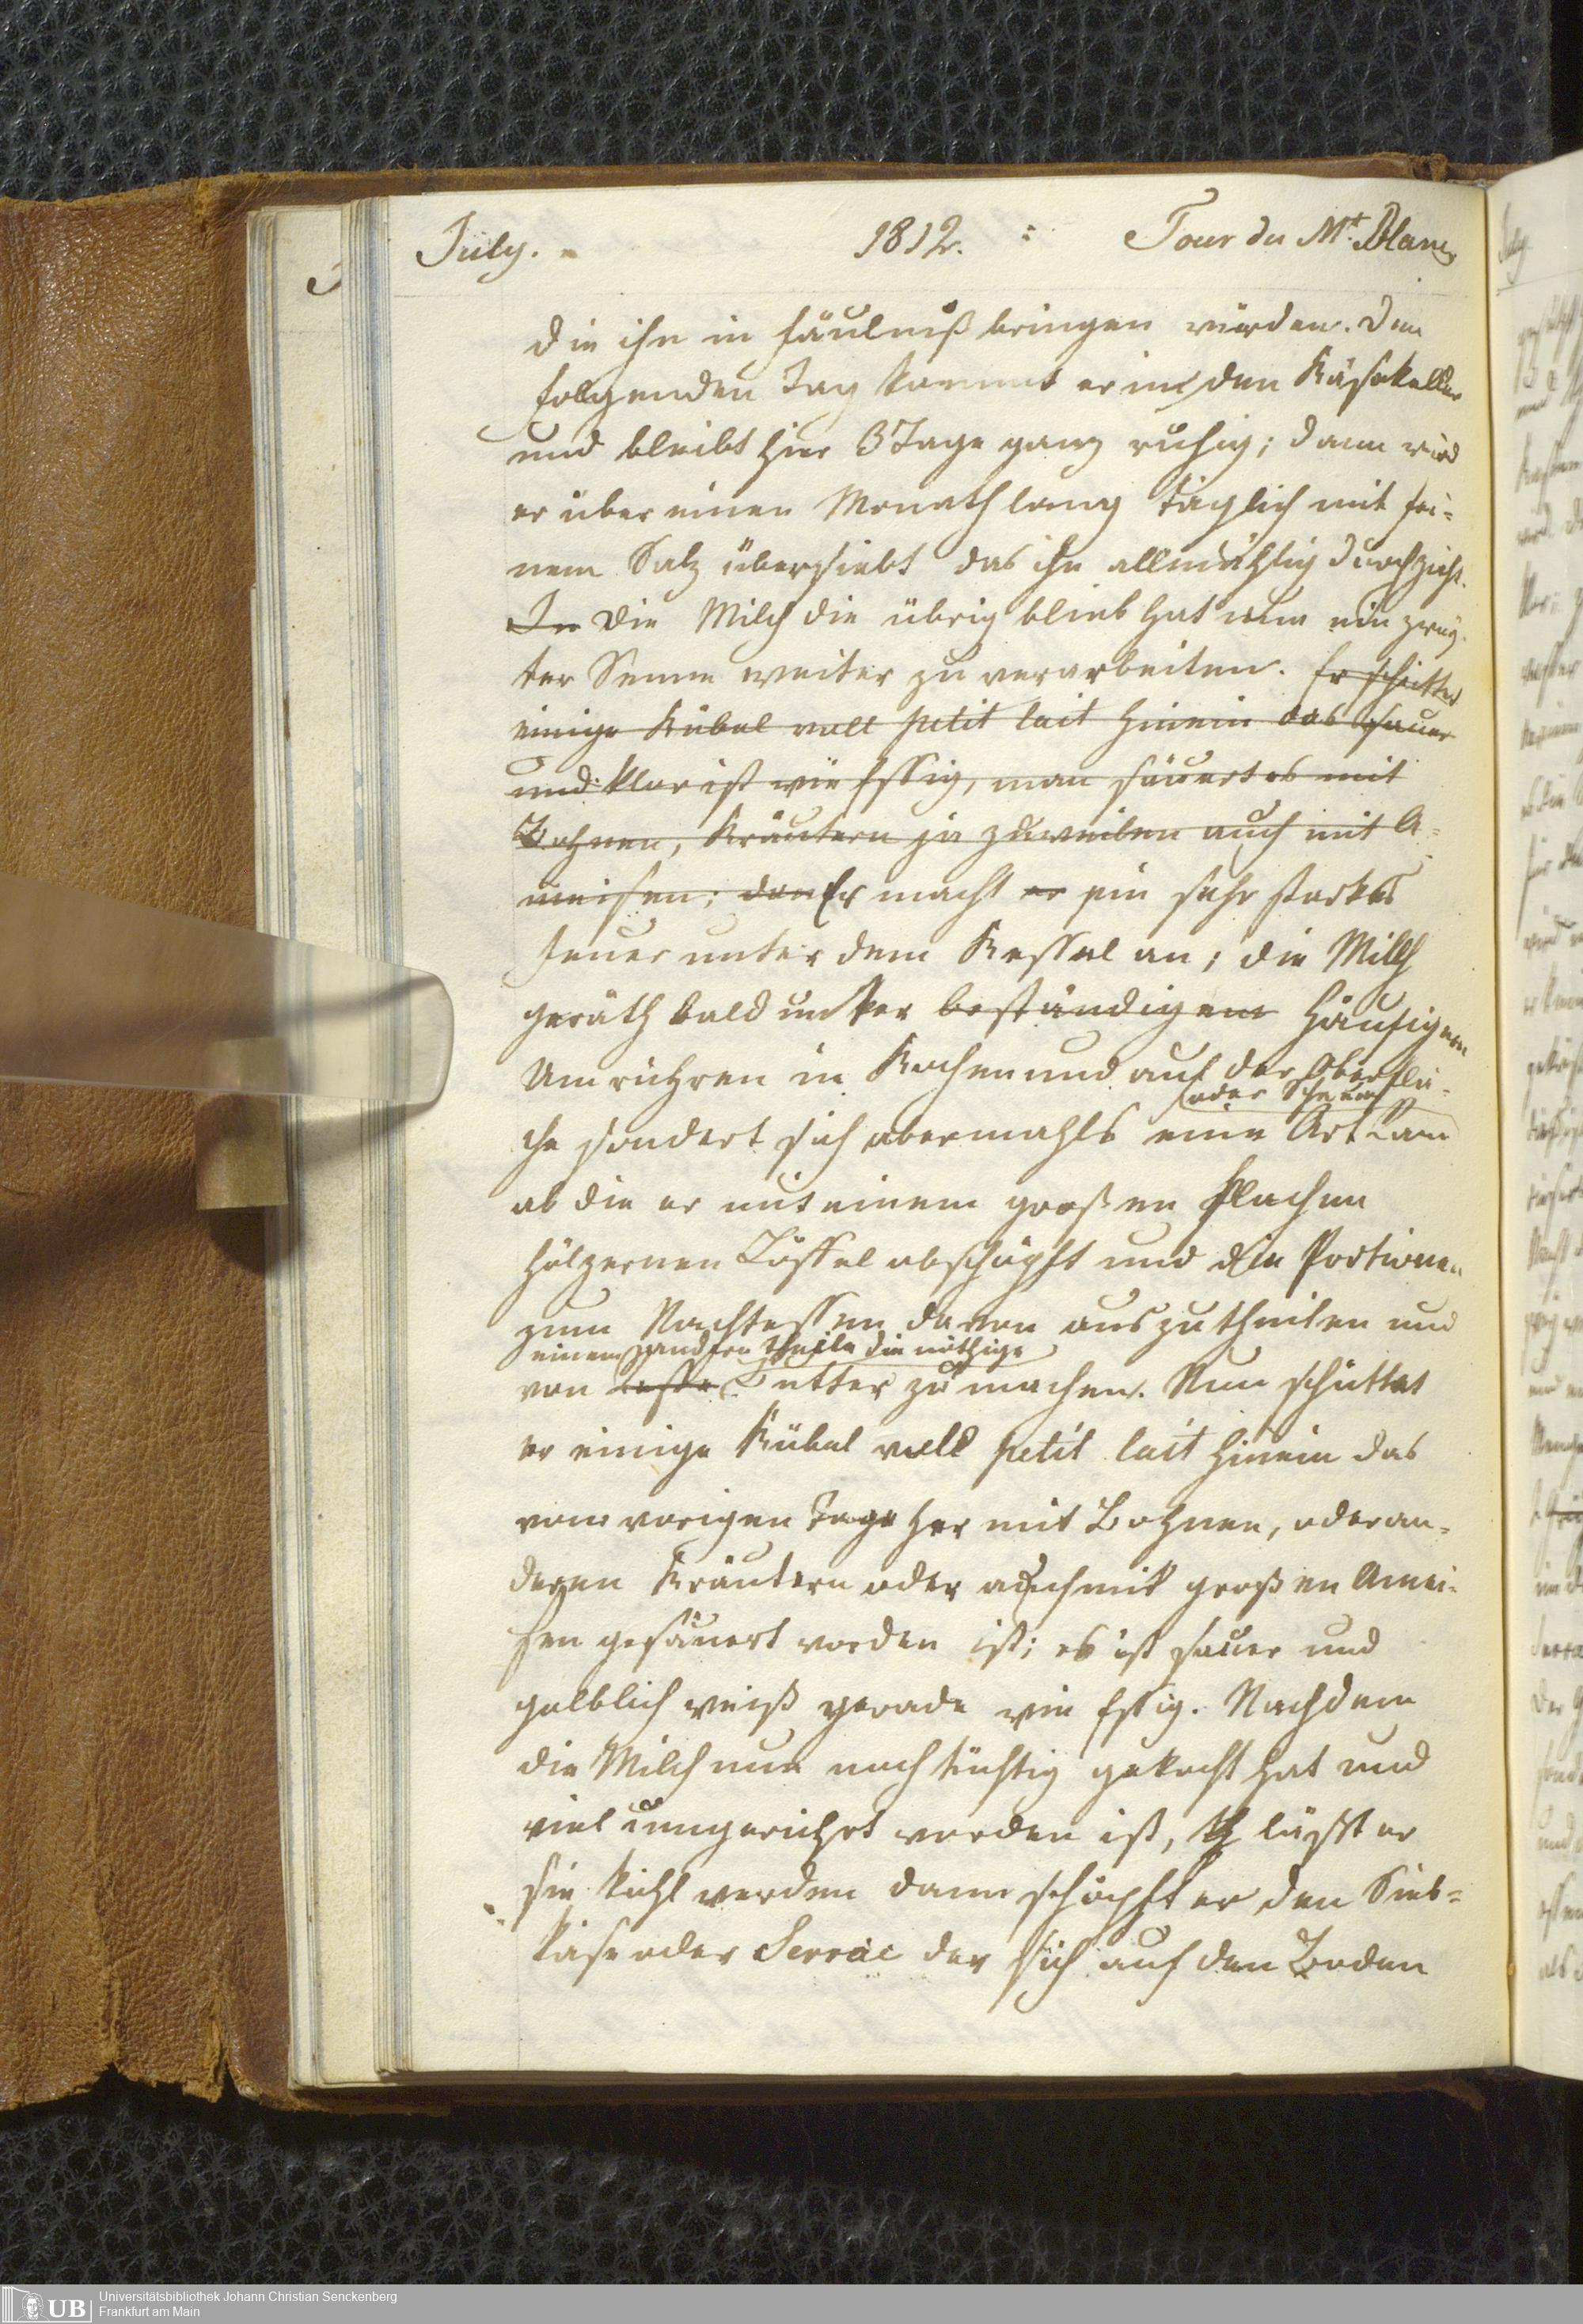 July. 1812. : Tour du Mt. Blanc
die ihn in Fäulniß bringen würden. Den
folgenden Tag kommt er in den Käsekeller
und bleibt hier 3 Tage ganz ruhig; dann wird
er über einen Monath lang täglich mit fei-
nem Salz übersiebt das ihn allmählig durchzieht.
In die Milch die übrig blieb hat nun ein zwey-
ter Senne weiter zu verarbeiten. Er schüttet
einige Kübel voll petit lait hinein das sauer
und klar ist wie Essig, man säuert es mit
Bohnen, Kräutern ja zuweilen auch mit A-
meisen; dan Er macht er ein sehr starkes
Feuer unter dem Kessel an; die Milch
geräth bald unter beständigem häufigem
Umrühren in Kochen und auf der Oberflä-
oder Schaum
che sondert sich abermahls eine Art Ram
ab die er mit einem großen flachen
hölzernen Löffel abschöpft und die Portionen
zum Nachtessen davon auszutheilen und
einem andern Theile die nöthige
von Butter zu machen. Nun schüttet
er einige Kübel voll petit lait hinein das
vom vorigen Tage her mit Bohnen, oder an-
deren Kräutern oder auch mit großen Amei-
sen gesäuert worden ist; es ist sauer und
gelblich weiß gerade wie Essig. Nachdem
die Milch nun noch tüchtig gekocht hat und
viel umgerührt worden ist, läßt er
sie kühl werden dann schöpft er den Sieb-
käse oder Serrac der sich auf den Boden
Universitätsbibliothek Johann Christian Senckenberg
UB Frankfurt am Main